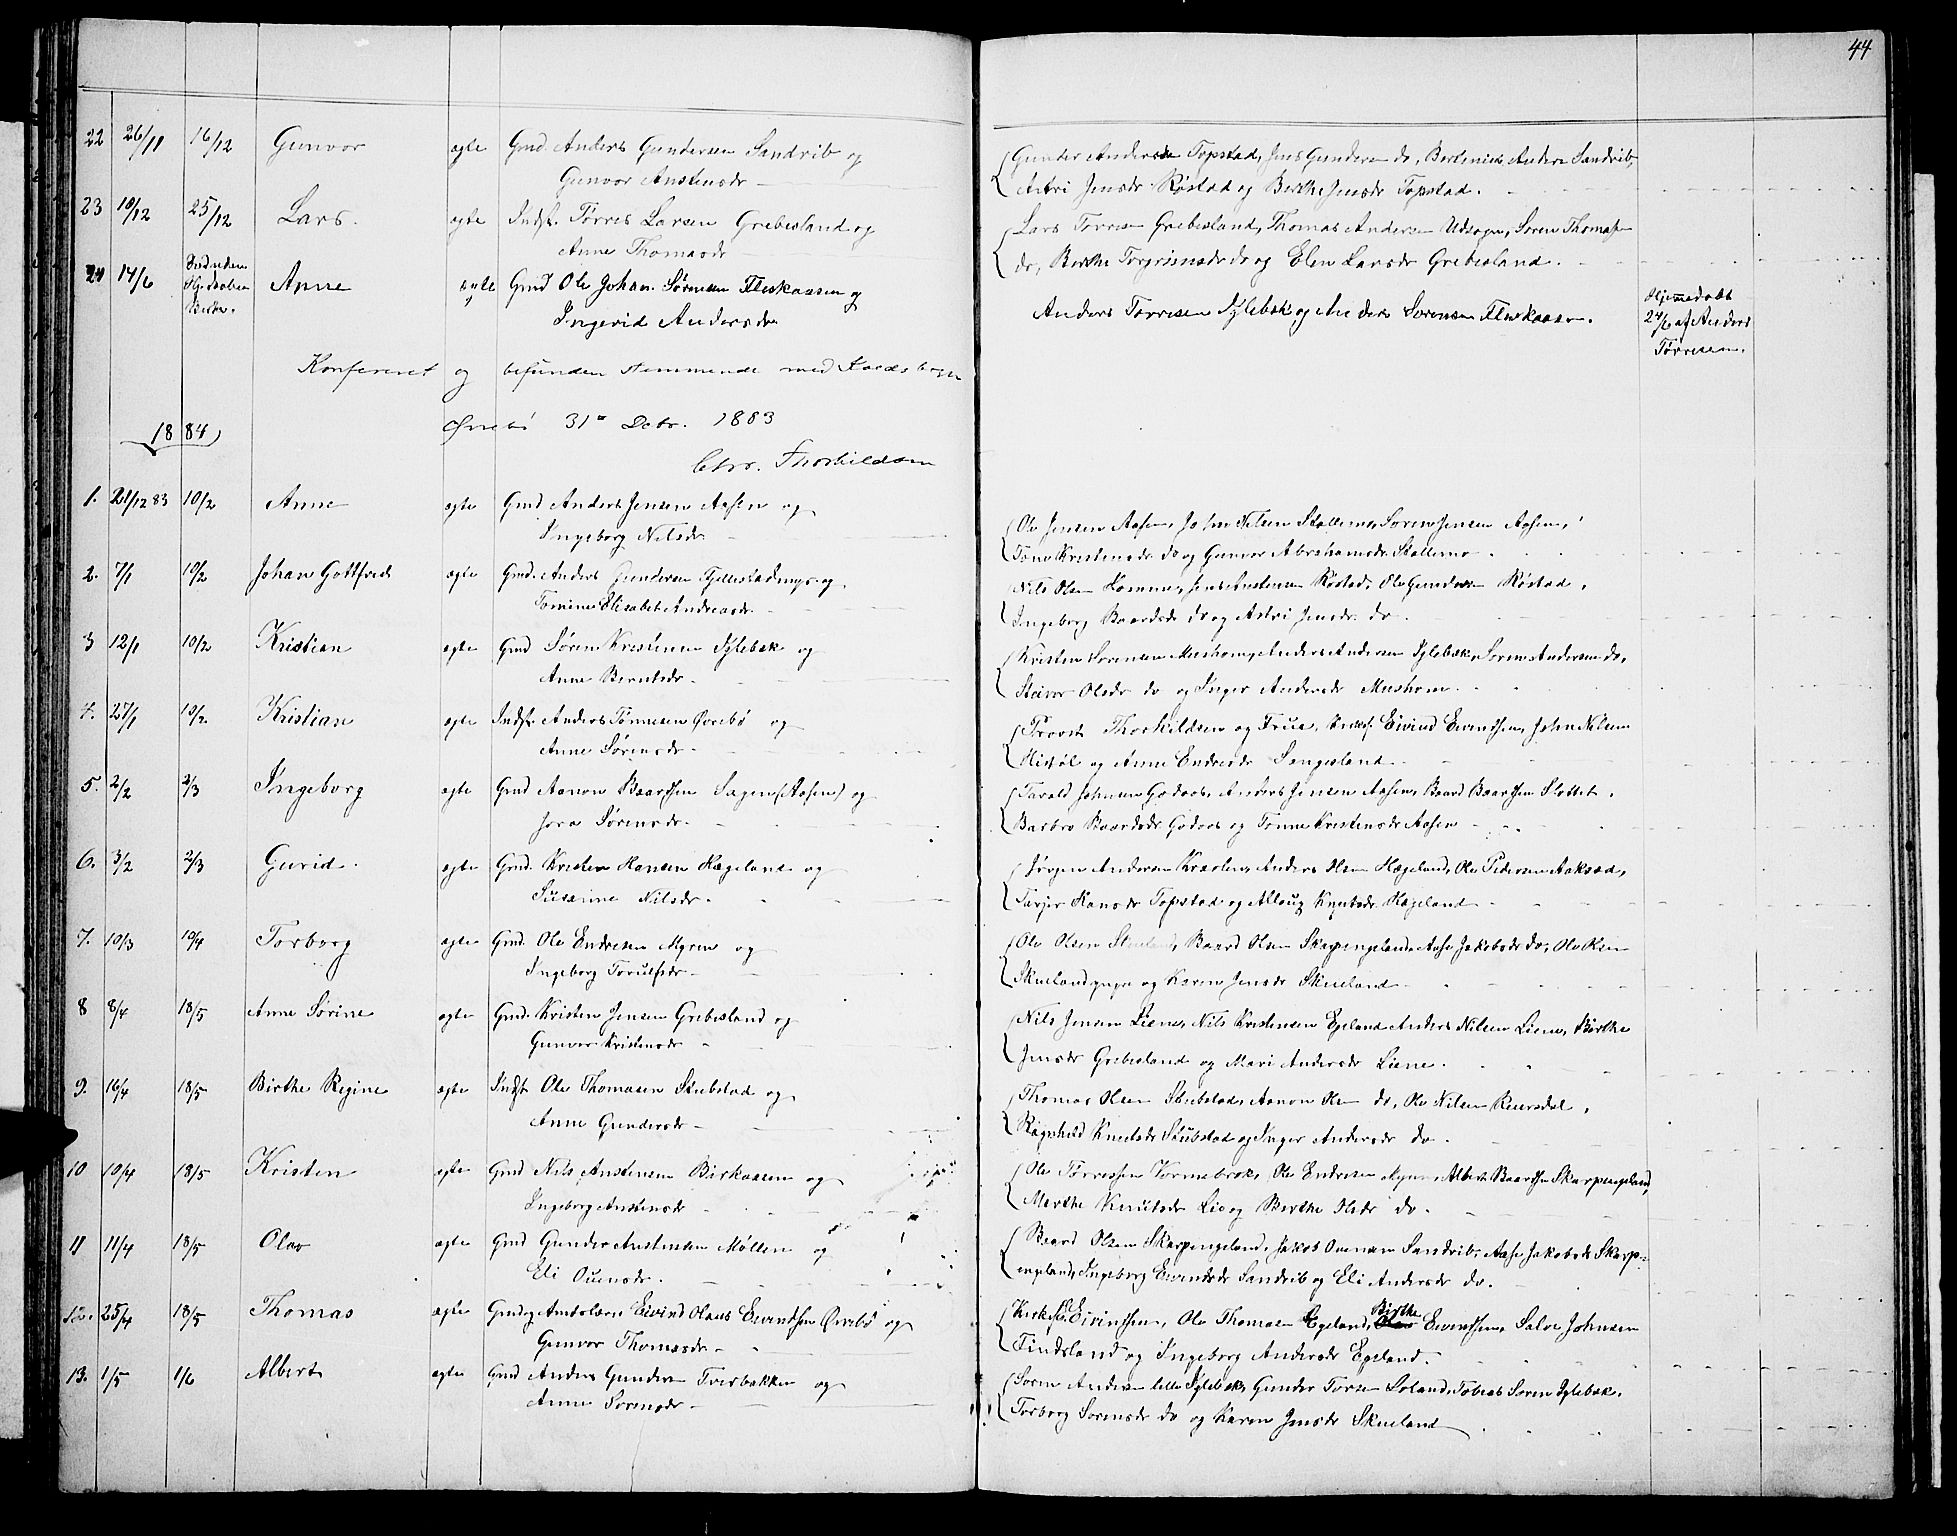 44
22 26/11 16/12 Gunvor ægte Gmd Anders Gundersen Sandrib og
Gunvor Anstensdr
Gunder Andersen Topstad, Jens Gundersen do, Andrs Sandrib,
Astri Jensdr Røstad og Berthe Jensdr Topstad.
23 10/12 25/12 Lars. ægte Indst. Tørres Larsen Grebesland og
Anne Thomasdr
Lars Torresen Grebesland, Thomas Andersen Udsogn, Søren Thomassen
do, Berthe Torgrimsdr do og Elen Larsdr Grebesland.
24 14/6 Anne ægte Gmd Ole Johan Sørensen Fleskaasen og
Ingerid Andersdr
Anders Tørresen Iglebæk og Anders Sørensen Fleskaasen.
Hjemmedøbt
24/6 af Anders
Tørresen.
Konfereret og befunden stemmende med
Øvrebø 31te Decbr. 1883
Chr. Thorkildsen
1884
1. 21/12 83 10/2 Anne ægte Gmd Anders Jensen Aasen og
Ingeborg Nilsdr
Ole Jensen Aasen, John Nilsen Stallemo, Søren Jensen Aasen,
Tone Kristensdr do og Gunvor Abrahamsdr Stallemo.
2. 7/1 10/2 Johan Gottfred ægte Gmd. Anders Gundersen og
Tomine Elisabet Andreasdr.
Nils Olsen Homme, Jens Anstensen Røstad, Ole Gundersen Røstad,
Ingeborg Baardsdr do og Astri Jensdr. do.
3 12/1 10/2 Kristian ægte Gmd Søren Kristensen Iglebæk og
Anne Berntsdr.
Kristen Sørensen Mushom, Anders Andersen Iglebæk, Søren Andersen do,
Olsdr do og Inger Andersdr Mushom.
4. 27/1 10/2. Kristian ægte Indst. Anders Tønnesen Øvrebø og
Anne Sørensdr.
Provst Thorkildsen og Frue, Eivind Eivendsen, John Nilsen
og Anne Endresdr Sangesland.
5. 2/2 2/3 Ingeborg ægte Gmd Aanon Baardsen Sagen (Aasen) og
Jora Sørensdr.
Tarald Johnsen Godaas, Anders Jensen Aasen, Baard Baardsen Slottet,
Barbro Baardsdr Godaas og Tonne Kristensdr Aasen
6. 3/2 2/3 Gurid. ægte Gmd. Kristen Hansen Hægeland og
Susanne Nilsdr.
Jørgen Andersen Anders Olsen Hægeland, Ole Pedersen
Hansdr Topstad og Knutsdr Hægeland
7. 10/3 10/4 Torborg ægte Gmd. Ole Endresen Myren og
Ingeborg Torulfsdr.
Ole Olsen Skueland, Baard Olsen Skarpengeland, Aase Jakobsdr do, Ole Olsen
og Karen Jensdr Skueland
8 8/4 18/5 Anne Sørine ægte Gmd. Kristen Jensen Grebesland og
Gunvor Kristensdr
Nils Jensen Liene, Nils Kristensen Egeland, Anders Nilsen Liene, Birthe
Jensdr Grebesland og Mari Andersdr Liene.
9. 16/4 18/5 Birthe Regine ægte Indst. Ole Thomasen Stubstad og
Anne Gundersdr
Thomas Olsen Stubstad, Aanon Olsen do, Ole Nilsen Reiersdal,
Ragnhild Knutsdr Stubstad og Inger Andersdr do.
10 10/4 18/5 Kristen ægte Gmd Nils Anstensen Birkaasen og
Ingeborg Anstensdr
Ole Tørressen Ole Endresen Myren, Albert Baardsen Skarpengeland,
Marthe Knutsdr Lie og Berthe Olsdr do.
11 11/4 18/5 Olav ægte Gmd Gunder Anstensen Møllen og
Eli Ouensdr.
Baard Olsen Skarpengeland, Jakob Ouensen Sandrib, Aase Jakobsdr Skarp-
engeland, Ingeborg Eivendsdr Sandrib og Eli Andersdr do.
12. 25/4 18/5 Thomas ægte Gmd og Eivind Olaus Eivendsen Øvrebø og
Gunvor Thomasdr
Eivinsen, Ole Thomasen Egeland, Birthe Eivensen, Salve Johnsen
Findsland og Ingeborg Andersdr Egeland.
13. 1/5 1/6 Albert ægte Gmd Anders Gundersen Tverbakken og
Anne Sørensdr
Søren Andersen lille Iglebæk, Gunder Torsen Loland, Tobias Sørensen Iglebæk,
Torborg Sørensdr do og Karen Jensdr Skueland